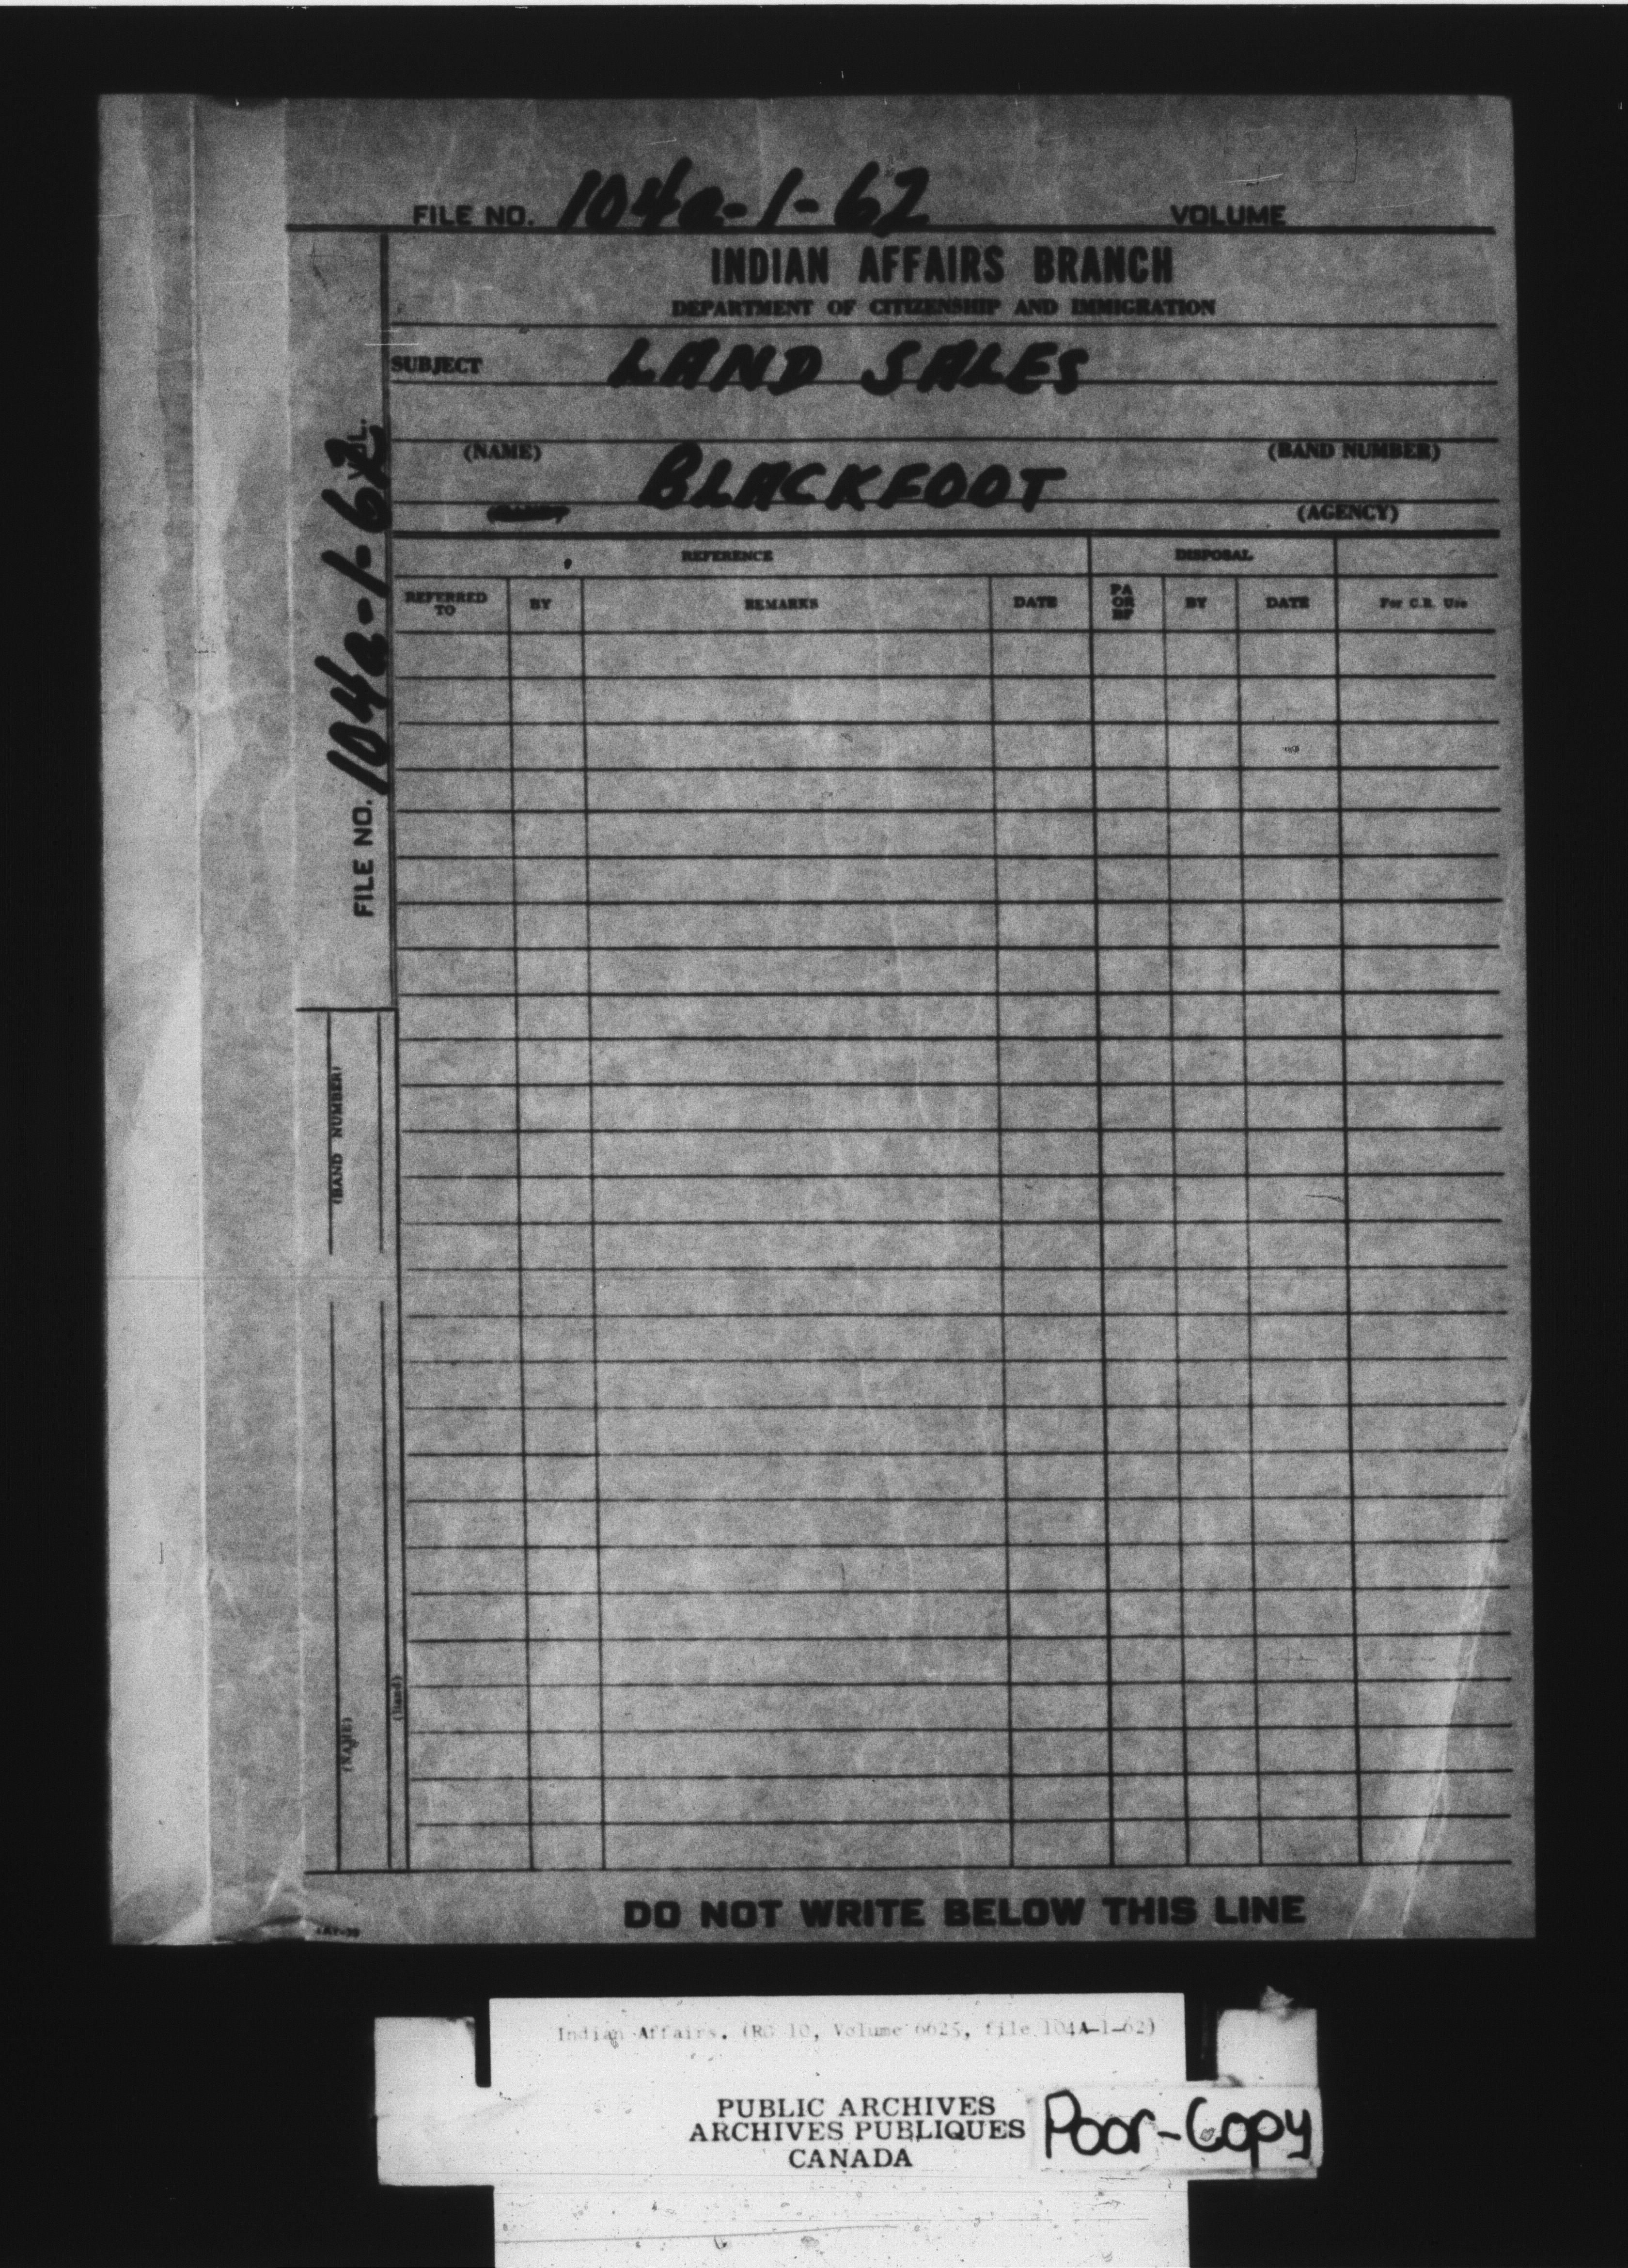 FILE NO. 104a-1-62 VOLUME
INDIAN AFFAIRS BRANCH
DEPARTMENT OF CITIZENSHIP AND IMMIGRATION
SUBJECT LAND SALES
(NAME) (BAND NUMBER)
BLACKFOOT
(AGENCY)
REFERENCE DISPOSAL
REFERRED TO BY REMARKS DATE PA OR BF BY DATE For C.R. Use
FILE NO. 104a-1-62 VOL.
(BAND NUMBER)
(NAME)
(Band)
DO NOT WRITE BELOW THIS LINE
Indian Affairs. (RG 10, Volume 6625, file 104A-1-62)
PUBLIC ARCHIVES
ARCHIVES PUBLIQUES
CANADA
Poor-Copy